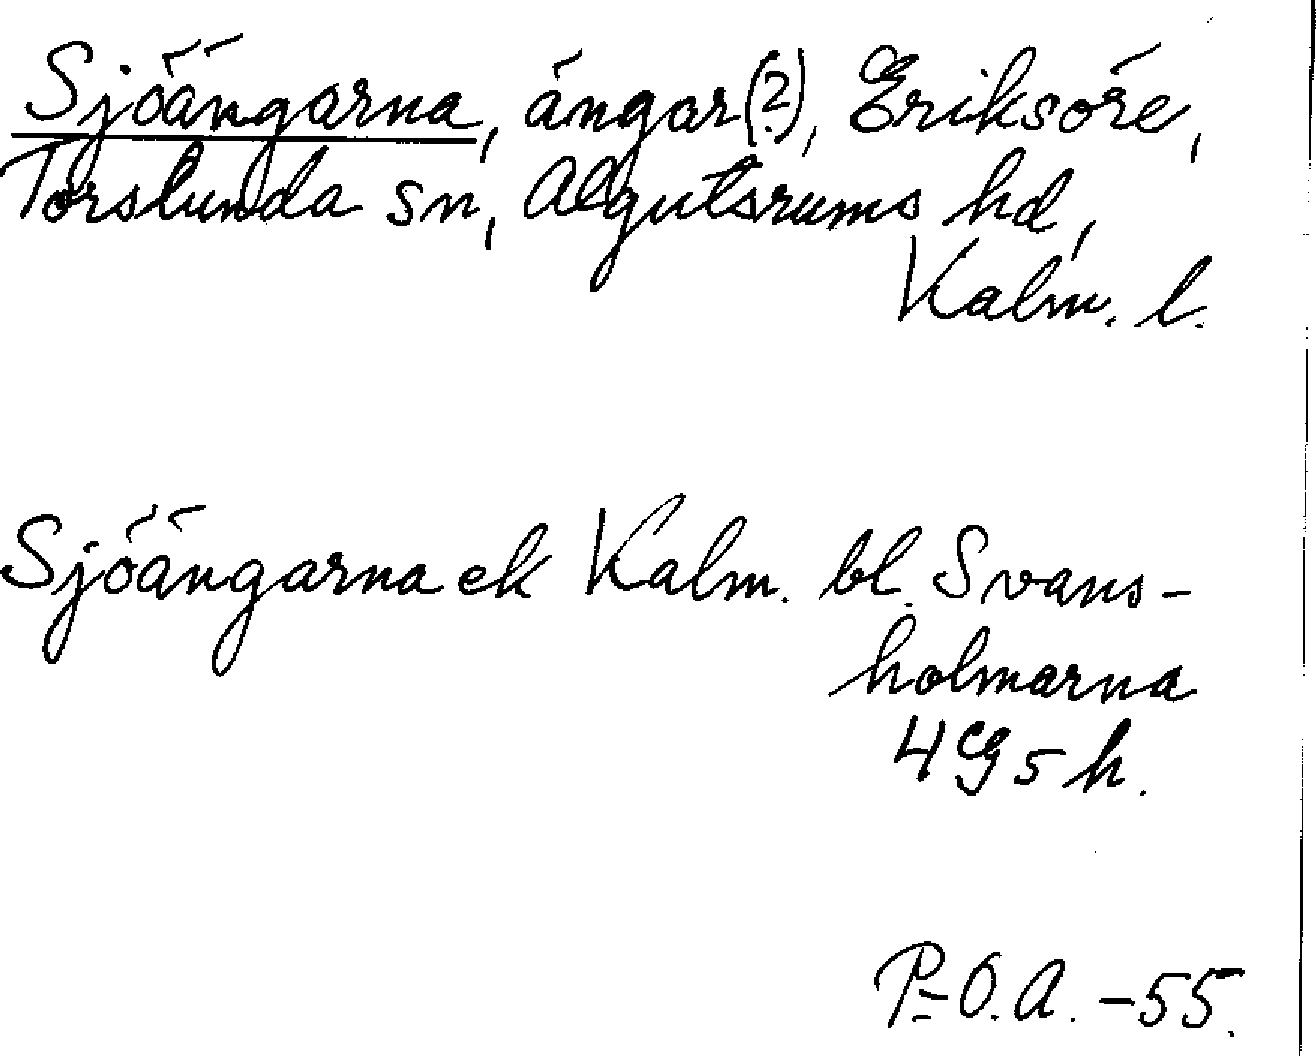 Sjöängarna, ängar(?), Eriksöre,
Torslunda sn, Algutsrums hd,
Kalm. l.
Sjöängarna ek Kalm. bl. Svans-
holmarna
4G5h.
P-O.A. -55.